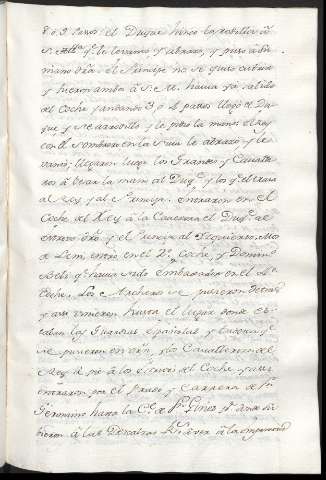 8 o 9 pasos el Duque hinco la rodilla à
S. Alt.ª y le levantó y abrazo, y puso à su
mano dra. el Principe no se quiso cubrir
y fueron ambos à S. M. havia ya salido
del coche y andando 3 ó 4 pasos llegó el Du
que y se arrodillo y le pidio la mano el Rey
con el sombrero en la suia le abrazó y le
vantó; llegaron luego los Grandes y Cavalle
ros à besar la mano al Duq.e y los q.e el traia
al Rey y al Principe. Entraron en el
Coche del Rey à la Cavecera el Duq.e al
estrivo dro. y el Principe al Izquierdo, Mos
de Lem, entró en el 2º Coche, y Domingo
q.e havia sido embaxador en el
Coche, Los Archeros se pusieron detras
y asi vinieron hasta el lugar donde es
taban las Guardias españolas y tudesca q.e
se pusieron en orñ. y los Cavallerizos del
Rey à pie à los estrivos del Coche y asi
entraron por el Prado y Carrera de Sn.
Geronimo hasta la C.e de Sn. Gines
bieron à las Descalzas R.s à ver à la emperatriz